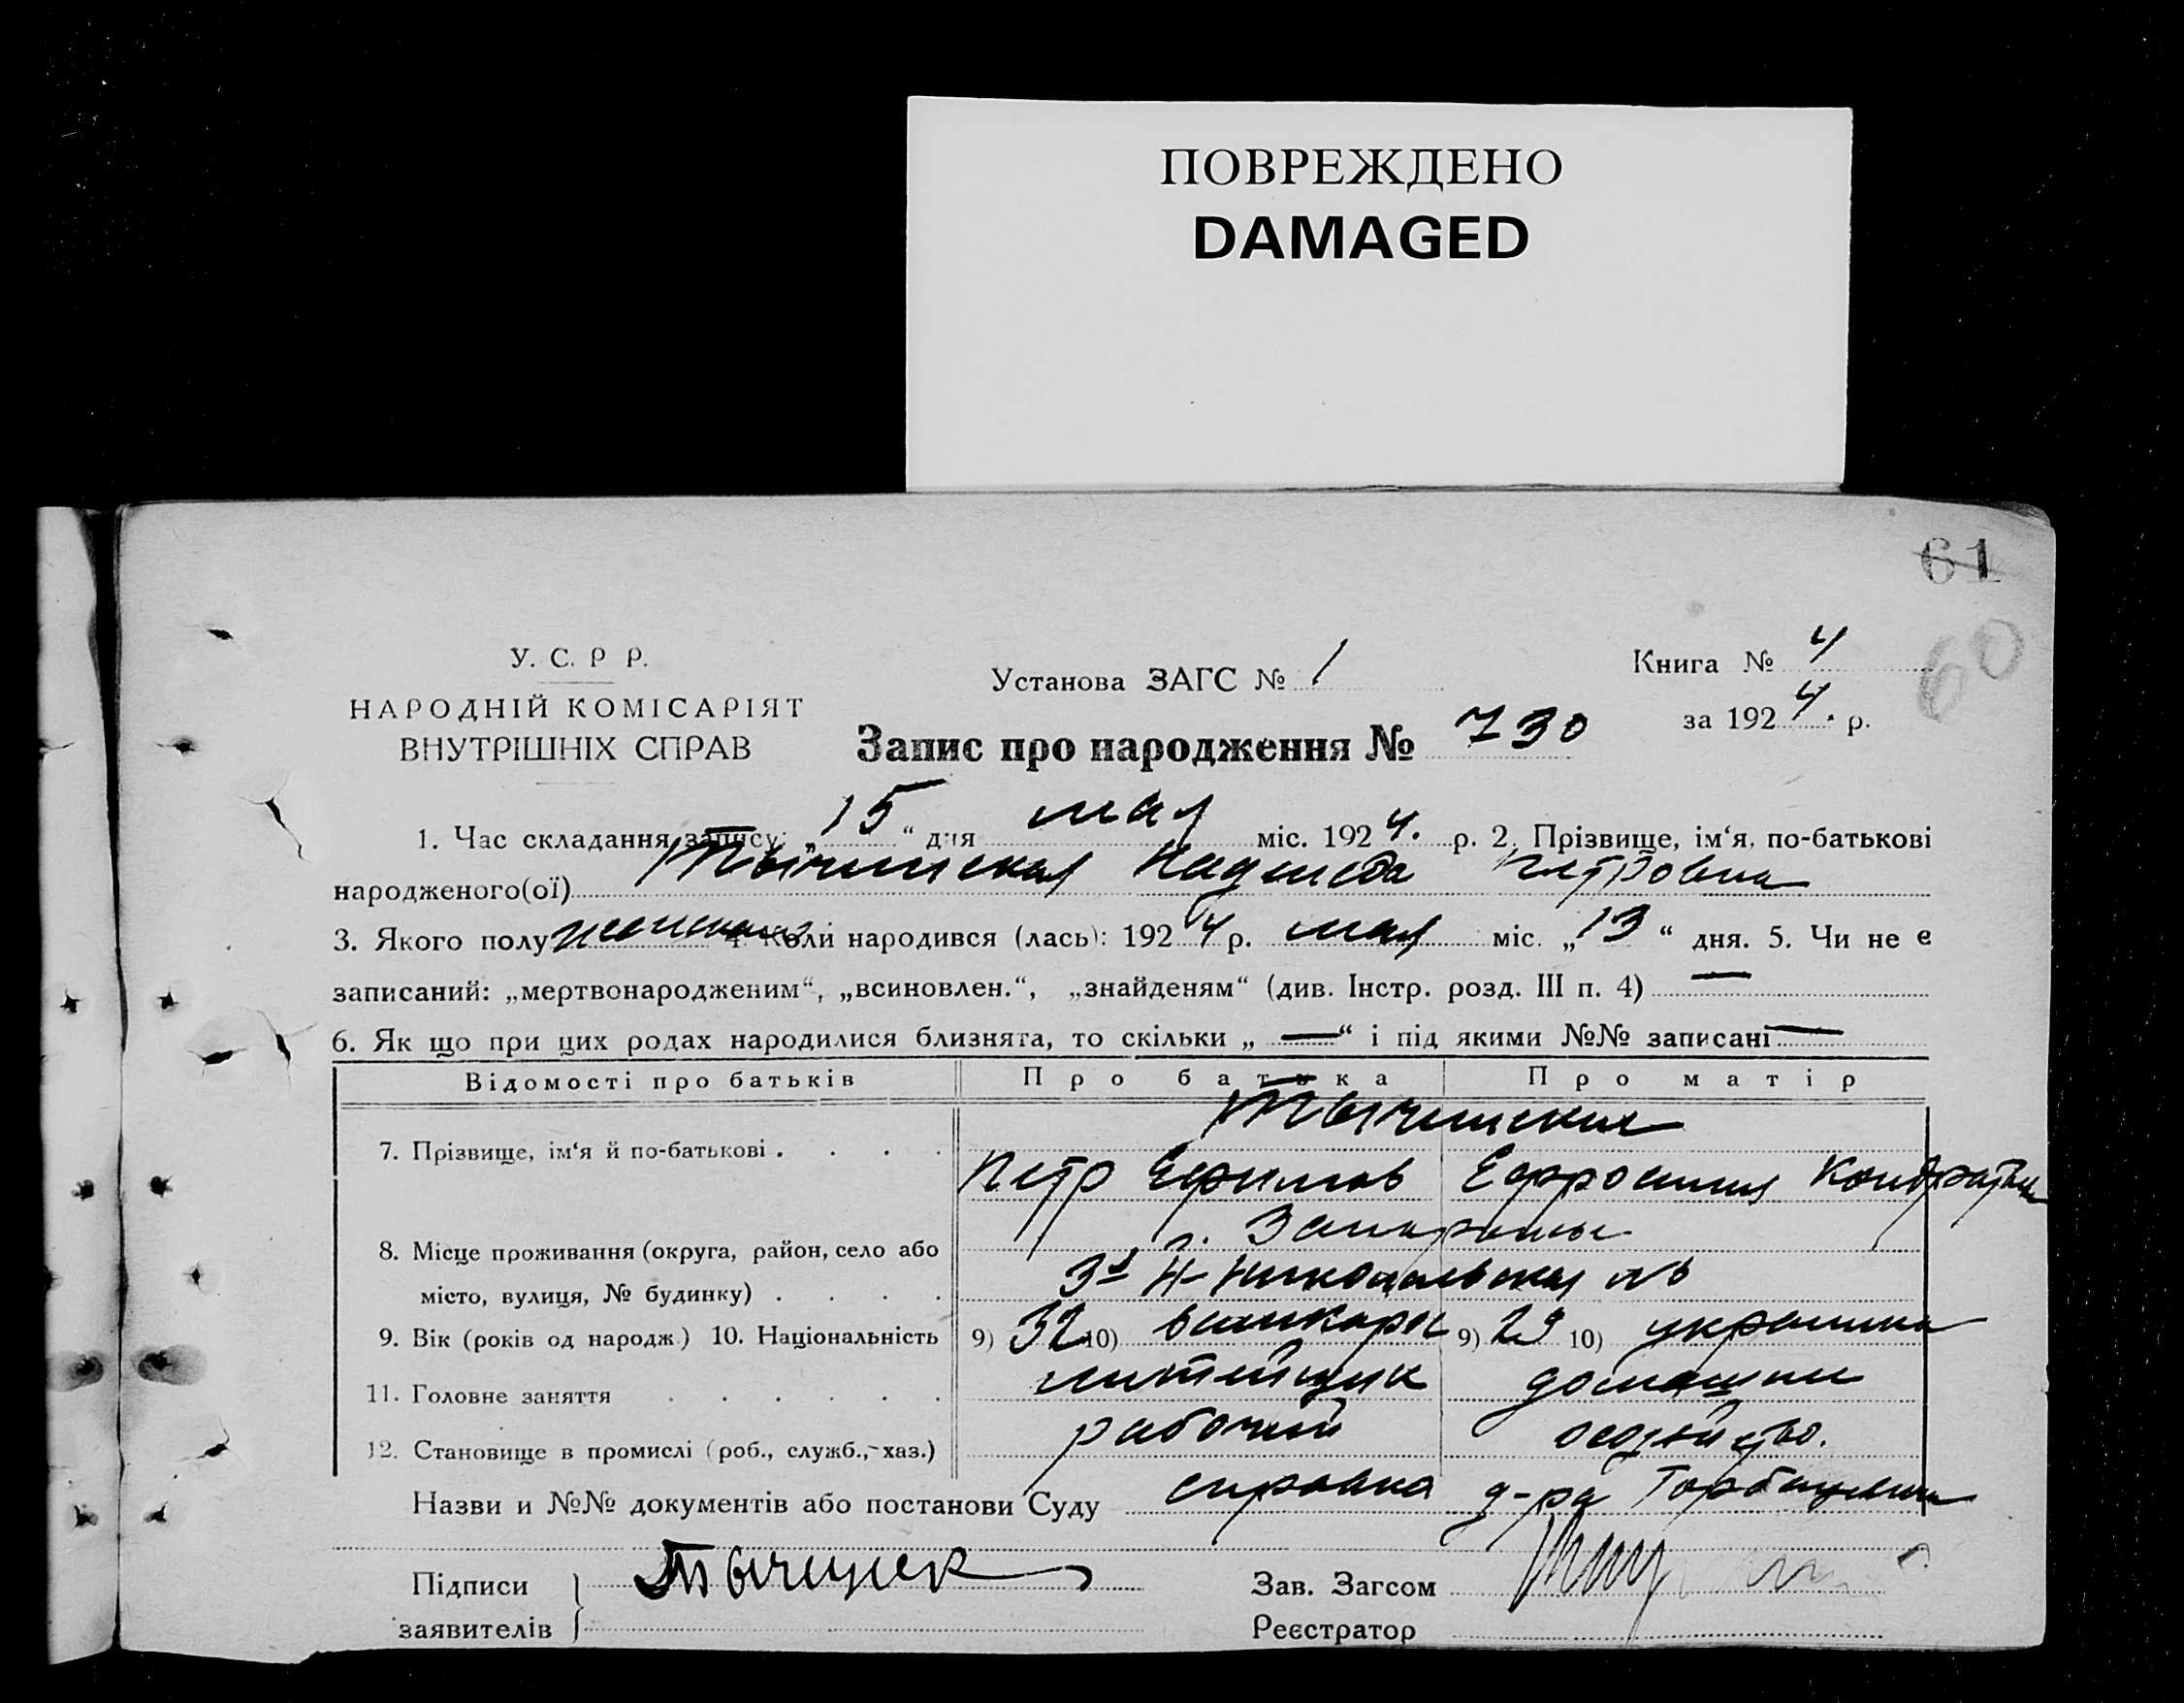 ПОВРЕЖДЕНО
DAMAGED
61
60
У. С. Р Р.
НАРОДНІЙ КОМІСАРІЯТ
ВНУТРІШНІХ СПРАВ
Установа ЗАГС № 1
Книга № 4
за 1924. р.
Запис про народження № 730
1. Час складання запису: „15“ дня мая міс. 1924. р. 2. Прізвище, ім‘я, по-батькові
народженого(ої) Надежда Петровна
3. Якого полу женскаго 4. Коли народився (лась): 1924 р. мая міс. „13“ дня. 5. Чи не є
записаний: „мертвонародженим“, „всиновлен.“, „знайденям“ (див. Інстр. розд. III п. 4) —
6. Як що при цих родах народилися близнята, то скільки „ — “ і під якими №№ записані —
Відомості про батьків Про батька Про матір
7. Прізвище, ім‘я й по-батькові . . . .
Петр Ефимов Ефросиния
8. Місце проживання (округа, район, село або
місто, вулиця, № будинку) . . . .
9. Вік (років од народж.) 10. Національність 9) 32 10) 9) 29 10) украинка
11. Головне заняття . . . . . литейщик домашнее
12. Становище в промислі (роб., служб., хаз.) рабочий
Назви и №№ документів або постанови Суду справка д-ра
Підписи
заявителів
Зав. Загсом
Реєстратор